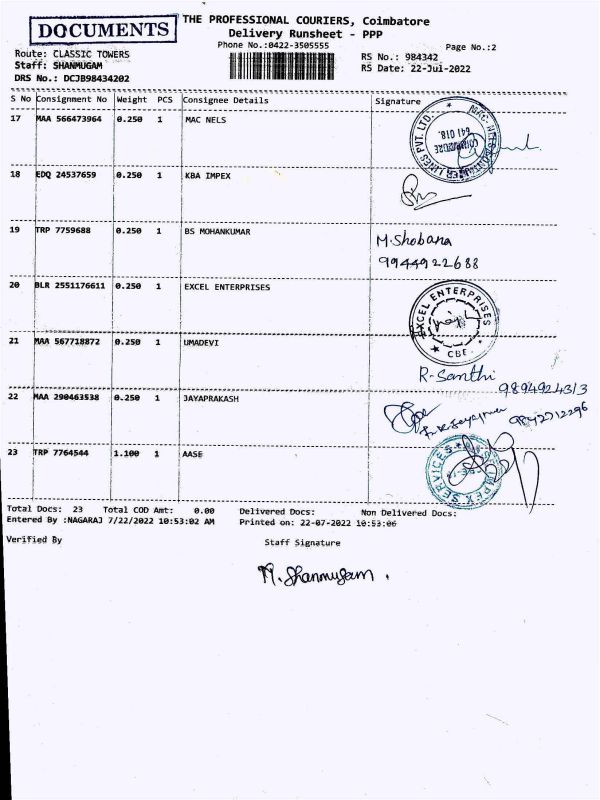 DOCUMENTS
THE PROFESSIONAL COURIERS, Coimbatore
Delivery Runsheet - PPP
Phone No.:0422-3505555
Page No.:2
Route: CLASSIC TOWERS
RS No.: 984342
Staff: SHANMUGAM
RS Date: 22-Jul-2022
DRS No.: DCJB98434202
S No Consignment No Weight PCS Consignee Details Signature
17 MAA 566473964 0.250 1 MAC NELS
641 018.
COIMBATORE
18 EDQ 24537659 0.250 1 KBA IMPEX
19 TRP 7759688 0.250 1 BS MOHANKUMAR
M.Shobana
9944922688
20 BLR 2551176611 0.250 1 EXCEL ENTERPRISES
EXCEL ENTERPRISES
CBE
21 MAA 567718872 0.250 1 UMADEVI
R-Santhi 9894924313
22 MAA 290463538 0.250 1 JAYAPRAKASH
9842712296
23 TRP 7764544 1.100 1 AASE
IMPEX SERVICES
Total Docs: 23 Total COD Amt: 0.00 Delivered Docs: Non Delivered Docs:
Entered By :NAGARAJ 7/22/2022 10:53:02 AM Printed on: 22-07-2022 10:53:06
Verified By Staff Signature
M.Shanmugam.